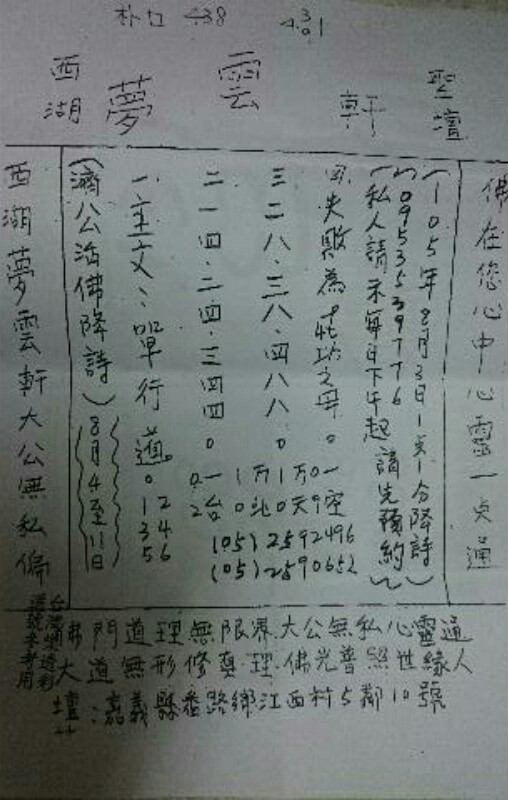 朴口 438 4301
聖壇
軒
雲
夢
西湖
佛在您心中心靈一点通
(105年8月3日1点1分降詩)
(0953539776)
(私人請示每日下午起 請先預約)
四、失敗為成功之母。
三、二八、三八、四八八。
二、一四、二四、三四四。
一、主文
單行道。
(濟公活佛降詩)
8月4至11日
西湖夢雲軒大公無私偏
0 1 2
3 4
5 6
(05) 2592496
(05) 2590652
佛門道理無限界大公無私心靈通
大道無形修真理佛光普照世緣人
壇址：嘉義縣番路鄉江西村5鄰10號